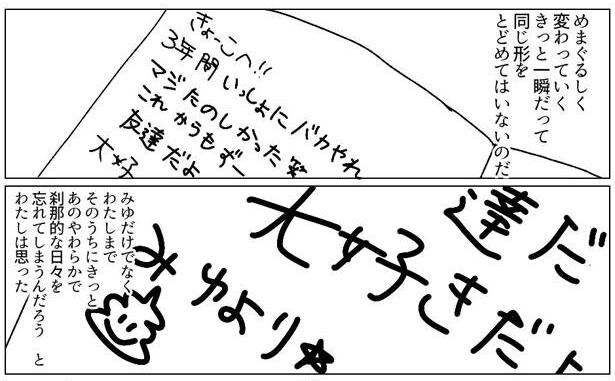 めまぐるしく
変わっていく
きっと一瞬だって
同じ形を
とどめてはいないのだ
きょーこへ!!
3年間いっしょにバカやれ
マジたのしかった
これからもずー
友達だよ
大好
達だ
大好きだよ
みゆより☆
みゆだけでなく
わたしまで
そのうちにきっと
あのやわらかで
刹那的な日々を
忘れてしまうんだろう と
わたしは思った